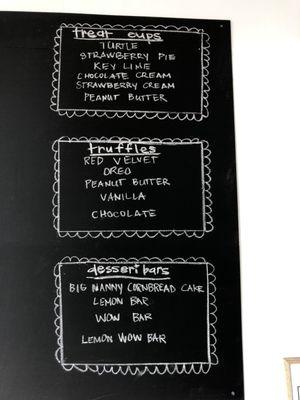 treat cups
TURTLE
STRAWBERRY PIE
KEY LIME
CHOCOLATE CREAM
STRAWBERRY CREAM
PEANUT BUTTER
truffles
RED VELVET
OREO
PEANUT BUTTER
VANILLA
CHOCOLATE
dessert bars
BIG NANNY CORNBREAD CAKE
LEMON BAR
WOW BAR
LEMON WOW BAR